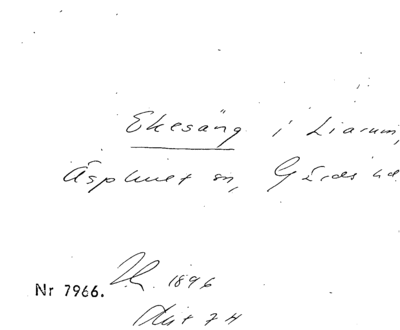 Ekesäng i Liarum,
Äsphult sn, Gärds hd
Nr 7966. 1896